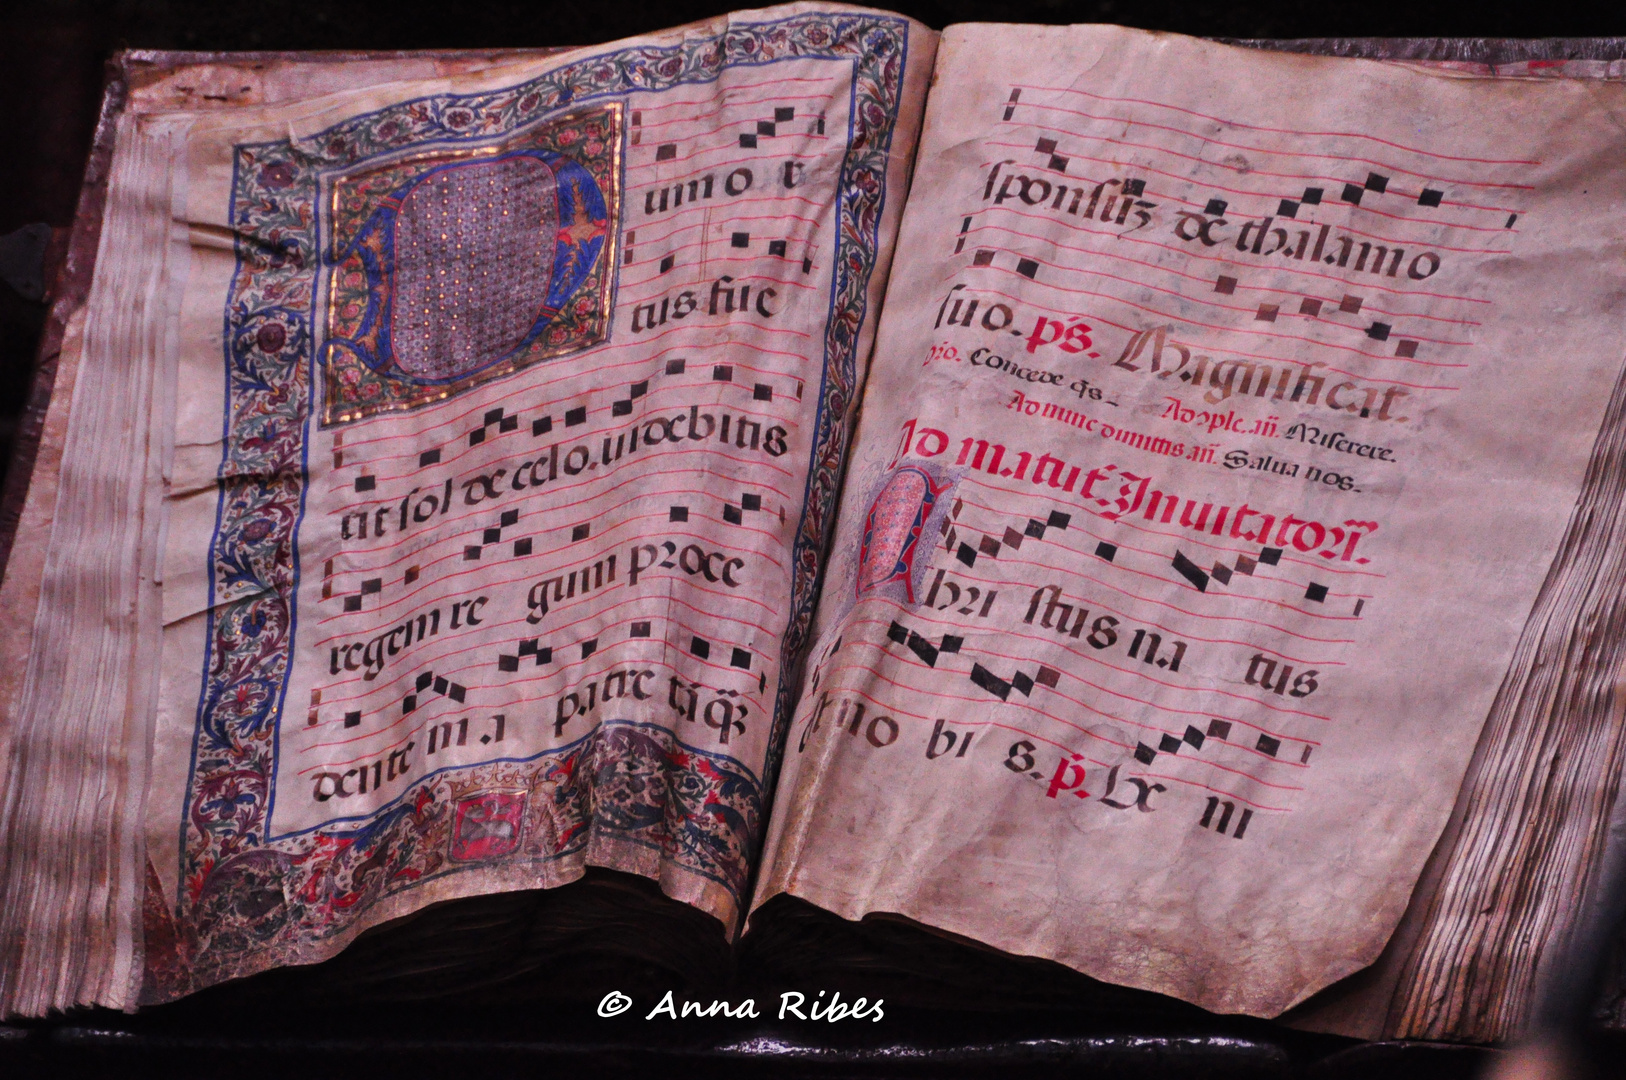 um o r
tus fue
rit sol de celo. uidebitis
regem re gum proce
dente m a patre tāq̄ȝ
sponsuȝ de thalamo
suo. p̄s. Magnificat.
oro. Concede q̄s. Ad ꝯple. an̄. Miserere.
Ad nunc dimittis an̄. Salua nos.
Ad matut̄. Inuitatori.
hri stus na tus
est no bis. p̄. Ue ni
© Anna Ribes